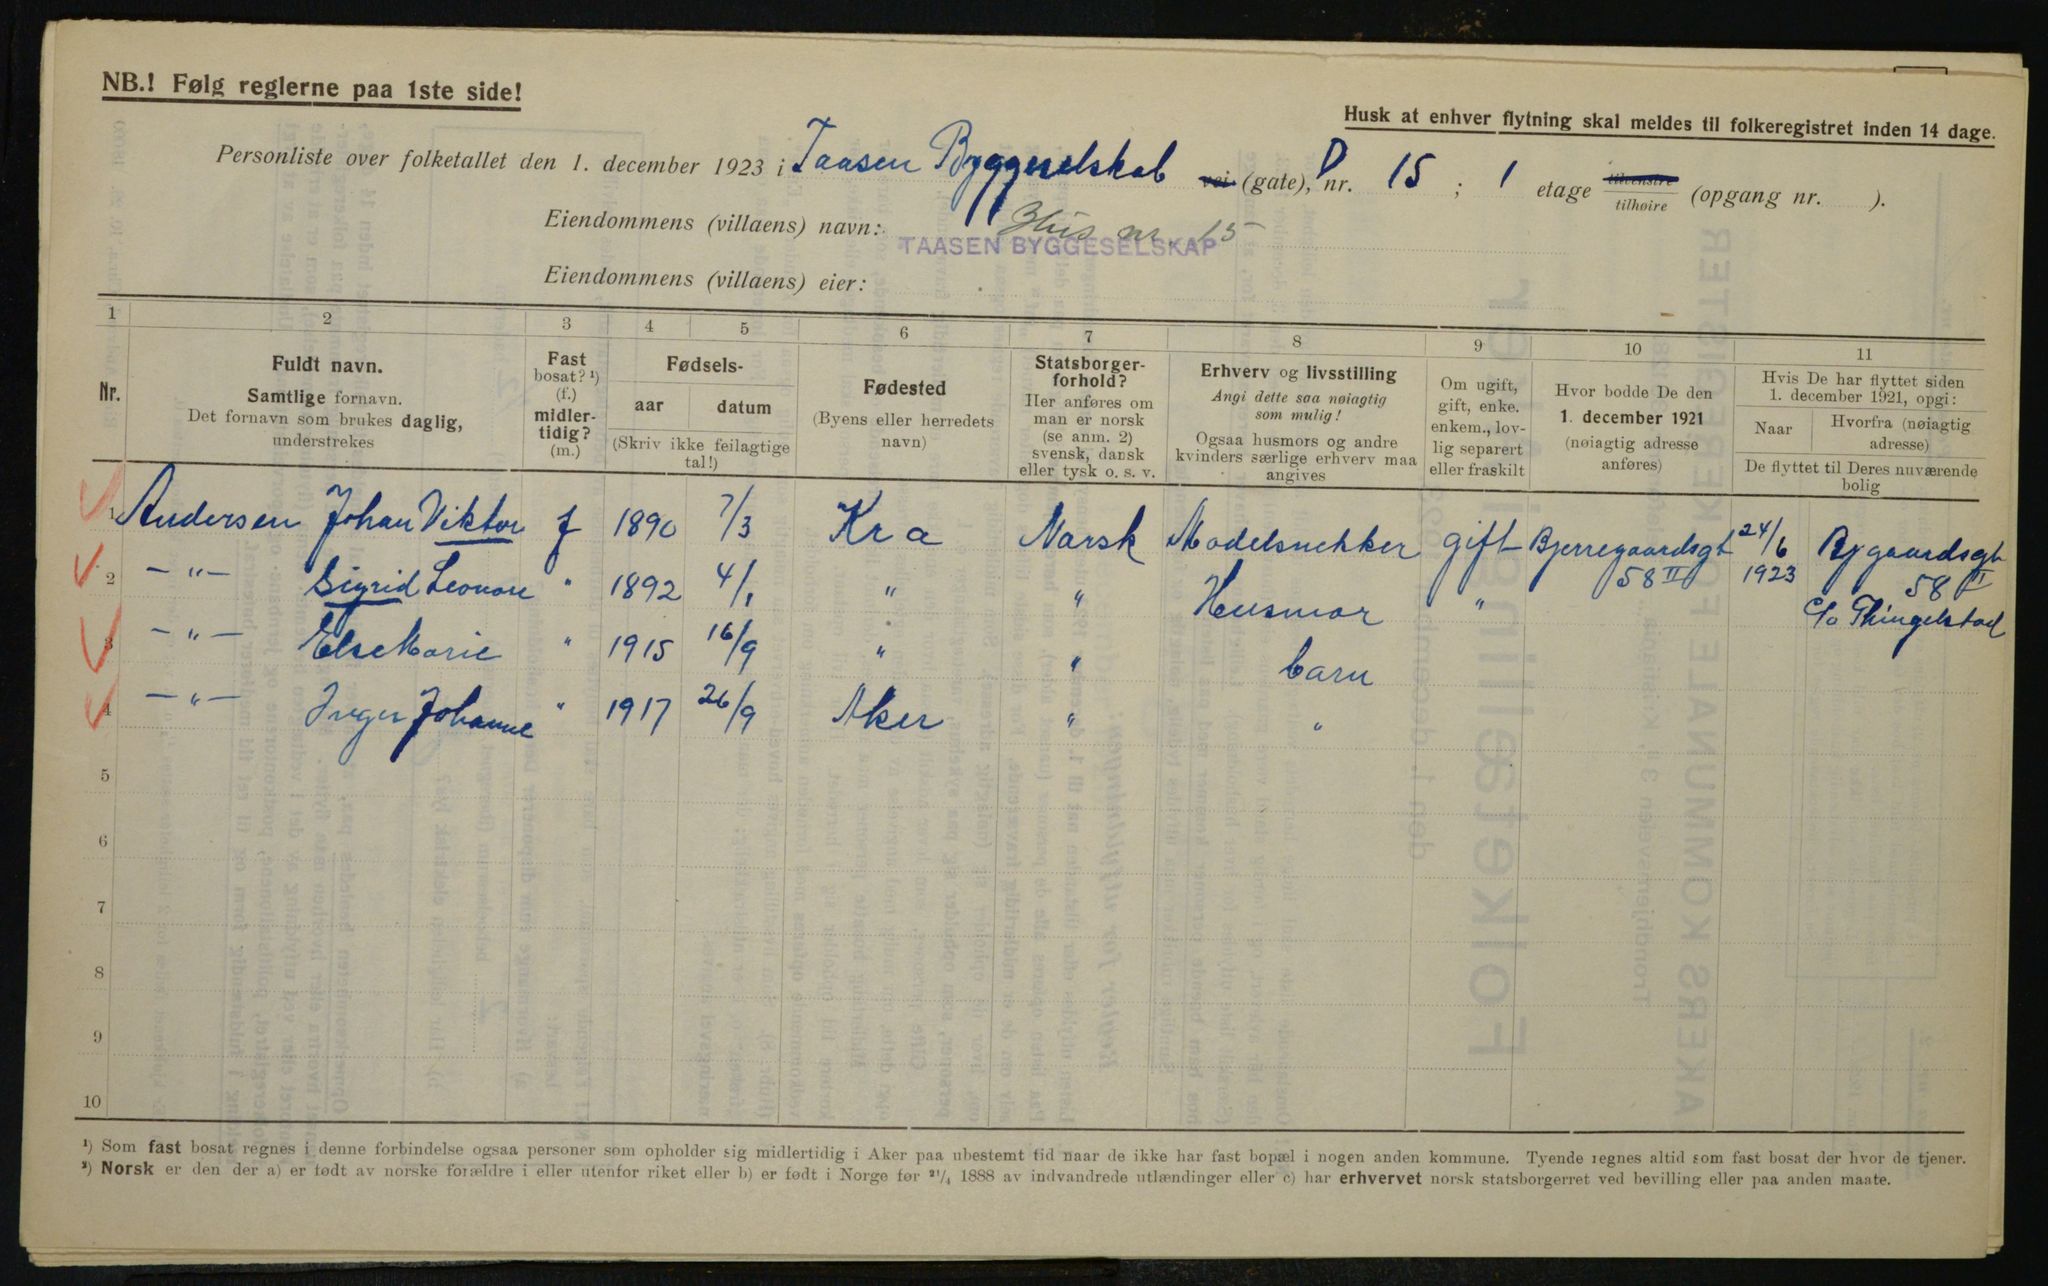 NB.! Følg reglerne paa 1ste side!
Husk at enhver flytning skal meldes til folkeregistret inden 14 dage.
Personliste over folketallet den 1. december 1923 i Taasen Byggeselskab vei (gate), D nr. 15 ; 1 etage tilvenstre tilhøire (opgang nr. ).
Eiendommens (villaens) navn: Hus nr. 15
TAASEN BYGGESELSKAP
Eiendommens (villaens) eier:
1 2 3 4 5 6 7 8 9 10 11
Nr.
Fuldt navn.
Samtlige fornavn.
Det fornavn som brukes daglig,
understrekes
Fast
bosat? ¹)
(f.)
midler-
tidig?
(m.)
Fødsels-
aar datum
(Skriv ikke feilagtige
tal!)
Fødested
(Byens eller herredets
navn)
Statsborger-
forhold?
Her anføres om
man er norsk
(se anm. 2)
svensk, dansk
eller tysk o. s. v.
Erhverv og livsstilling
Angi dette saa nøiagtig
som mulig!
Ogsaa husmors og andre
kvinders særlige erhverv maa
angives
Om ugift,
gift, enke.
enkem., lov-
lig separert
eller fraskilt
Hvor bodde De den
1. december 1921
(nøiagtig adresse
anføres)
Hvis De har flyttet siden
1. december 1921, opgi:
Naar Hvorfra (nøiagtig
adresse)
De flyttet til Deres nuværende
bolig
1 Andersen Johan Viktor f 1890 7/3 Kra Norsk Modelsnekker gift Bjerregaardsgt 58 II 24/6 1923 Bj gaardsgt 58 II
2 — " — Sigrid Leonore " 1892 4/1 " " Husmor " c/o Thingelstad
3 — " — Else Marie " 1915 16/9 " " barn
4 — " — Inger Johanne " 1917 26/9 Aker " "
5
6
7
8
9
10
¹) Som fast bosat regnes i denne forbindelse ogsaa personer som opholder sig midlertidig i Aker paa ubestemt tid naar de ikke har fast bopæl i nogen anden kommune. Tyende regnes altid som fast bosat der hvor de tjener.
²) Norsk er den der a) er født av norske forældre i eller utenfor riket eller b) er født i Norge før ²¹/₄ 1888 av indvandrede utlændinger eller c) har erhvervet norsk statsborgerret ved bevilling eller paa anden maate.